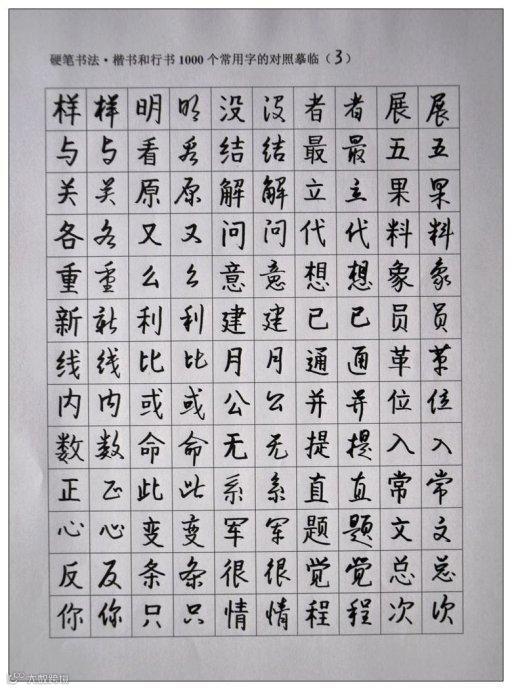 硬笔书法·楷书和行书1000个常用字的对照摹临（3）
样样明明没没者者展展
与与看看结结最最五五
关关原原解解立立果果
各各又又问问代代料料
重重么么意意想想象象
新新利利建建已已员员
线线比比月月通通革革
内内或或公公并并位位
数数命命无无提提入入
正正此此系系直直常常
心心变变军军题题文文
反反条条很很觉觉总总
你你只只情情程程次次
大数跨境